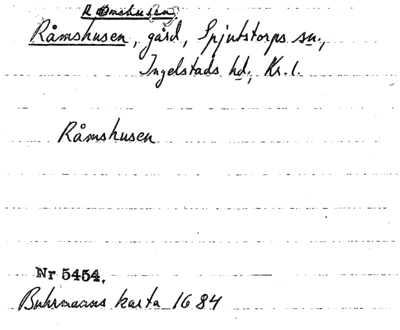 Ramshusen,
Råmshusen, gård, Spjutstorps sn.,
Ingelstads hd., Kr. l.
Råmshusen
Nr 5454.
Buhrmans karta 1684